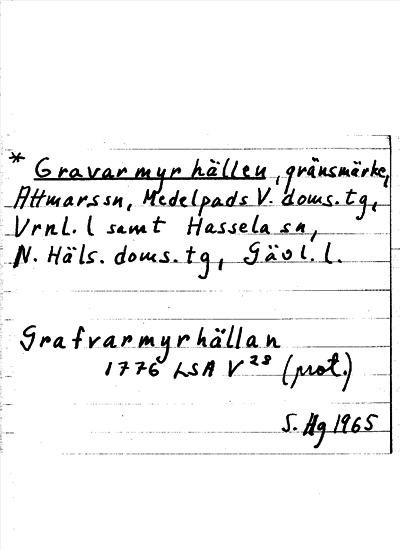 * Gravarmyrhällen, gränsmärke,
Attmarssn, Medelpads V. doms.tg,
Vrnl. l samt Hassela sn,
N. Häls. doms.tg, Gävl. l.
Grafvarmyrhällan
1776 LSA V 28 (prot.)
S. Hg 1965